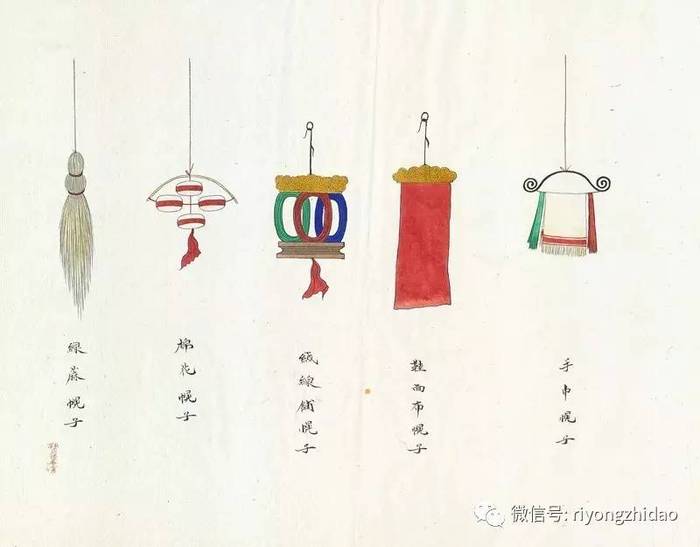 手巾幌子
鞋面布幌子
絨線舖幌子
棉花幌子
線蔴幌子
微信号: riyongzhidao